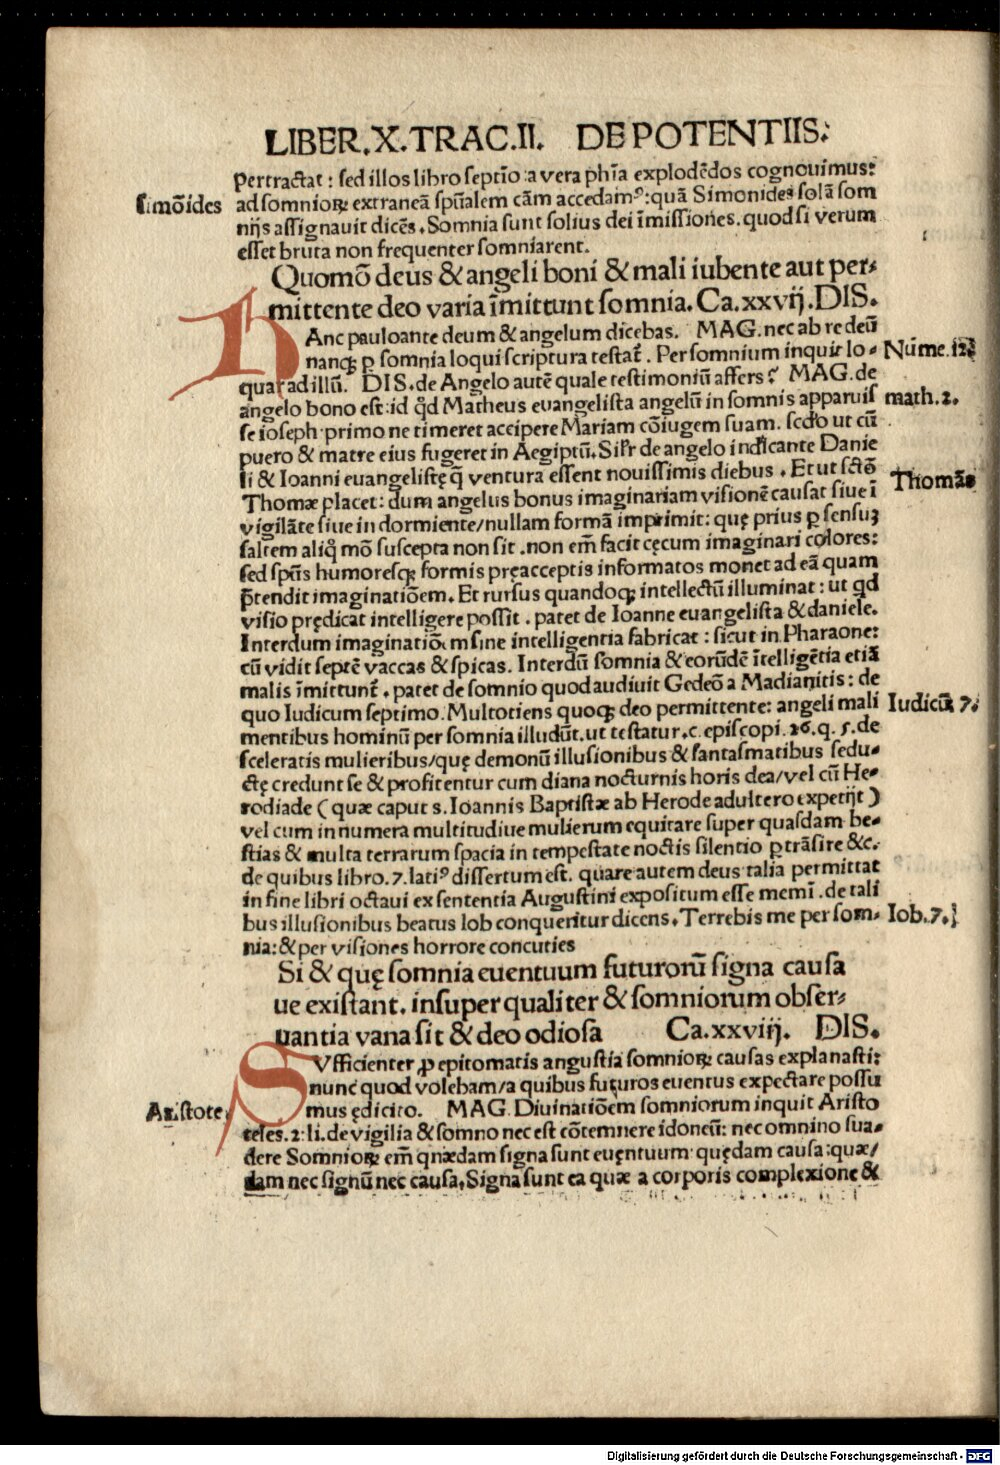 LIBER.X.TRAC.II. DE POTENTIIS.
pertractat: sed illos libro septīo: a vera phīa explodēdos cognouimus:
Simōides
ad somnioꝝ extraneā spūalem cām accedamꝰ: quā Simonides solā som
nijs assignauit dicēs. Somnia sunt solius dei īmissiones. quod si verum
esset bruta non frequenter somniarent.
Quomō deus & angeli boni & mali iubente aut per⸗
mittente deo varia īmittunt somnia. Ca.xxvij. DIS.
HAnc pauloante deum & angelum dicebas. MAG. nec ab re deū
nanqꝫ ꝑ somnia loqui scriptura testat̄. Per somnium inquit lo⸗
Nūme.12
quar ad illū. DIS. de Angelo autē quale testimoniū affers? MAG. de
angelo bono est: id qd̄ Matheus euangelista angelū in somnis apparuis
math.2.
se ioseph primo ne timeret accipere Mariam cōiugem suam. scd̄o ut cū
puero & matre eius fugeret in Aegiptū. Sil̄r de angelo indicante Danie
li & Ioanni euangelistę q̄ ventura essent nouissimis diebus. Et ut sctō
Thomās
Thomæ placet: dum angelus bonus imaginariam visionē causat siue ī
vigilāte siue in dormiente/ nullam formā imprimit: quę prius ꝑ sensuꝫ
saltem aliq̊ mō suscepta non sit. non em̄ facit cęcum imaginari colores:
sed spūs humoresqꝫ formis pręacceptis informatos monet ad eā quam
p̄tendit imaginatiōem. Et rursus quandoqꝫ intellectū illuminat: ut qd
visio prędicat intelligere possit. patet de Ioanne euangelista & daniele.
Interdum imaginatiōem sine intelligentia fabricat: sicut in Pharaone:
cū vidit septē vaccas & spicas. Interdū somnia & eorūdē ītelligētia etiā
malis īmittunt̄. patet de somnio quod audiuit Gedeō a Madianitis: de
quo Iudicum septimo. Multotiens quoqꝫ deo permittente: angeli mali
Iudicū 7.
mentibus hominū per somnia illudūt. ut testatur. c. episcopi. 26. q. 5. de
sceleratis mulieribus/ quę demonū illusionibus & fantasmatibus sedu⸗
ctę credunt se & profitentur cum diana nocturnis horis dea/ vel cū He⸗
rodiade (quæ caput s. Ioannis Baptistæ ab Herode adultero expetijt)
vel cum innumera multitudine mulierum equitare super quasdam be⸗
stias & multa terrarum spacia in tempestate noctis silentio ꝑtrāsire &c.
de quibus libro. 7. latiꝰ dissertum est. quare autem deus talia permittat
in fine libri octaui ex sententia Augustini expositum esse memī. de tali
bus illusionibus beatus Iob conqueritur dicens. Terrebis me per som⸗
Iob.7.
nia: & per visiones horrore concuties
Si & quę somnia euentuum futurorū signa causa
ue existant. insuper qualiter & somniorum obser⸗
uantia vana sit & deo odiosa Ca.xxviij. DIS.
SVfficienter ꝓ epitomatis angustia somnioꝝ causas explanasti:
nunc quod volebam/ a quibus futuros euentus expectare possu
mus ędicito. MAG. Diuinatiōem somniorum inquit Aristo
Aristote.
teles. 2. li. de vigilia & somno nec est cōtemnere idoneū: nec omnino sua⸗
dere Somnioꝝ em̄ quædam signa sunt euęntuum quędam causa: quæ/
dam nec signū nec causa. Signa sunt ea quæ a corporis complexione &
Digitalisierung gefördert durch die Deutsche Forschungsgemeinschaft - DFG